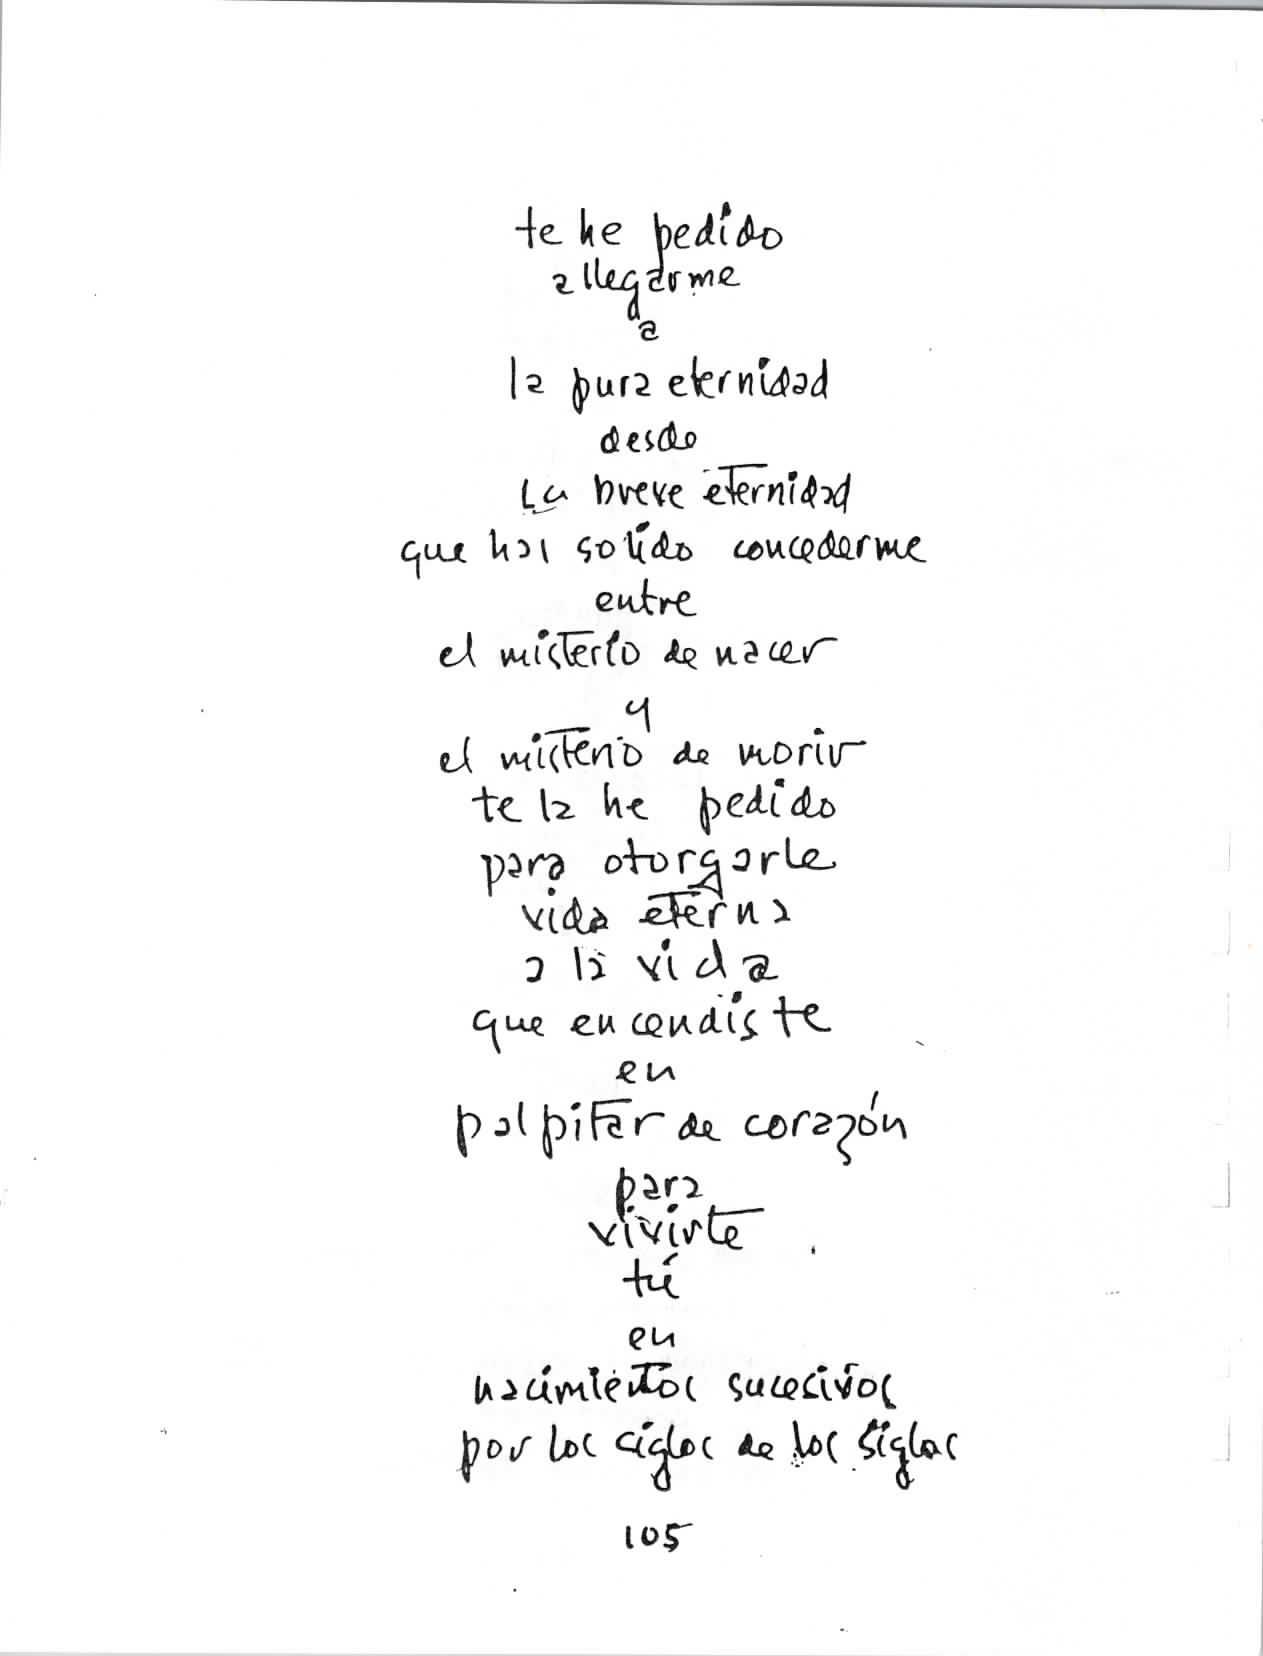 te he pedido
allegarme
a
la pura eternidad
desde
La breve eternidad
que has solido concederme
entre
el misterio de nacer
y
el misterio de morir
te la he pedido
para otorgarle
vida eterna
a la vida
que encendiste
en
palpitar de corazón
para
vivirte
tú
en
nacimientos sucesivos
por los siglos de los siglos
105